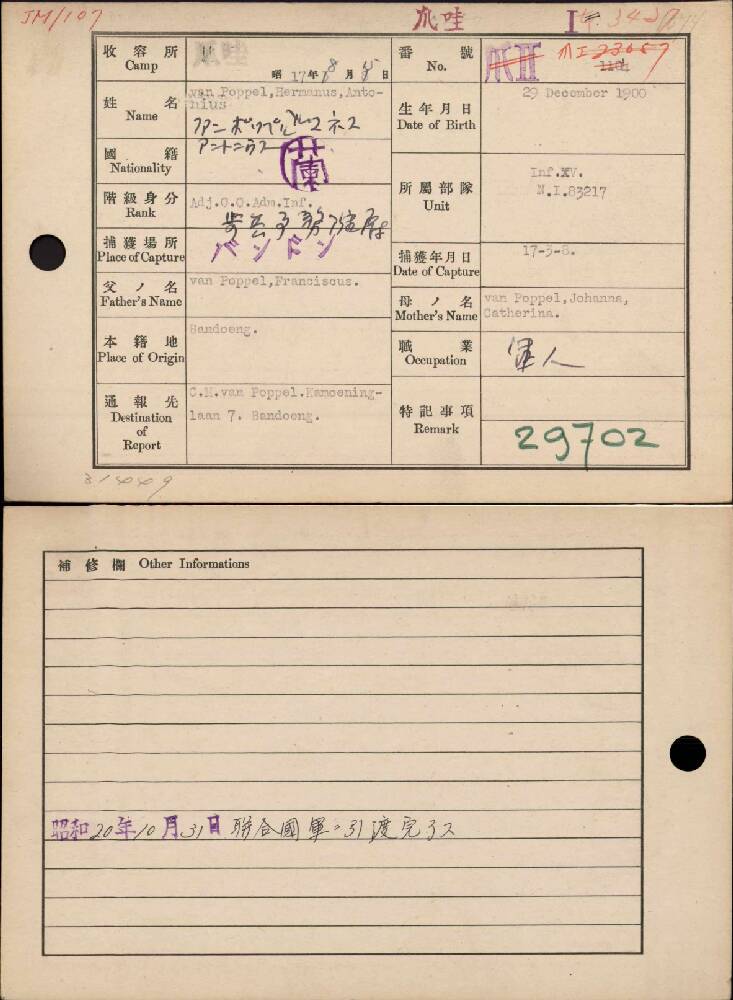 JM/107
爪哇
I 34
收容所
Camp
爪哇
昭 17年 8月 15日
番號
No.
爪II
爪I 23057
姓名
Name
van Poppel,Hermanus,Anto-
nius
ファン ポッペル ヘルマネス
アントニウス
生年月日
Date of Birth
29 December 1900
國籍
Nationality
蘭
階級身分
Rank
Adj.O.O.Adm.Inf.
所屬部隊
Unit
Inf.XV.
N.I.83217
捕獲場所
Place of Capture
バンドン
捕獲年月日
Date of Capture
17-3-8.
父ノ名
Father's Name
van Poppel,Franciscus.
母ノ名
Mother's Name
van Poppel,Johanna,
Catherina.
本籍地
Place of Origin
Bandoeng.
職業
Occupation
軍人
通報先
Destination
of
Report
C.M.van Poppel.Kamoening-
laan 7. Bandoeng.
特記事項
Remark
29702
31449
補修欄 Other Informations
昭和20年10月31日 聯合國軍ニ引渡完了ス